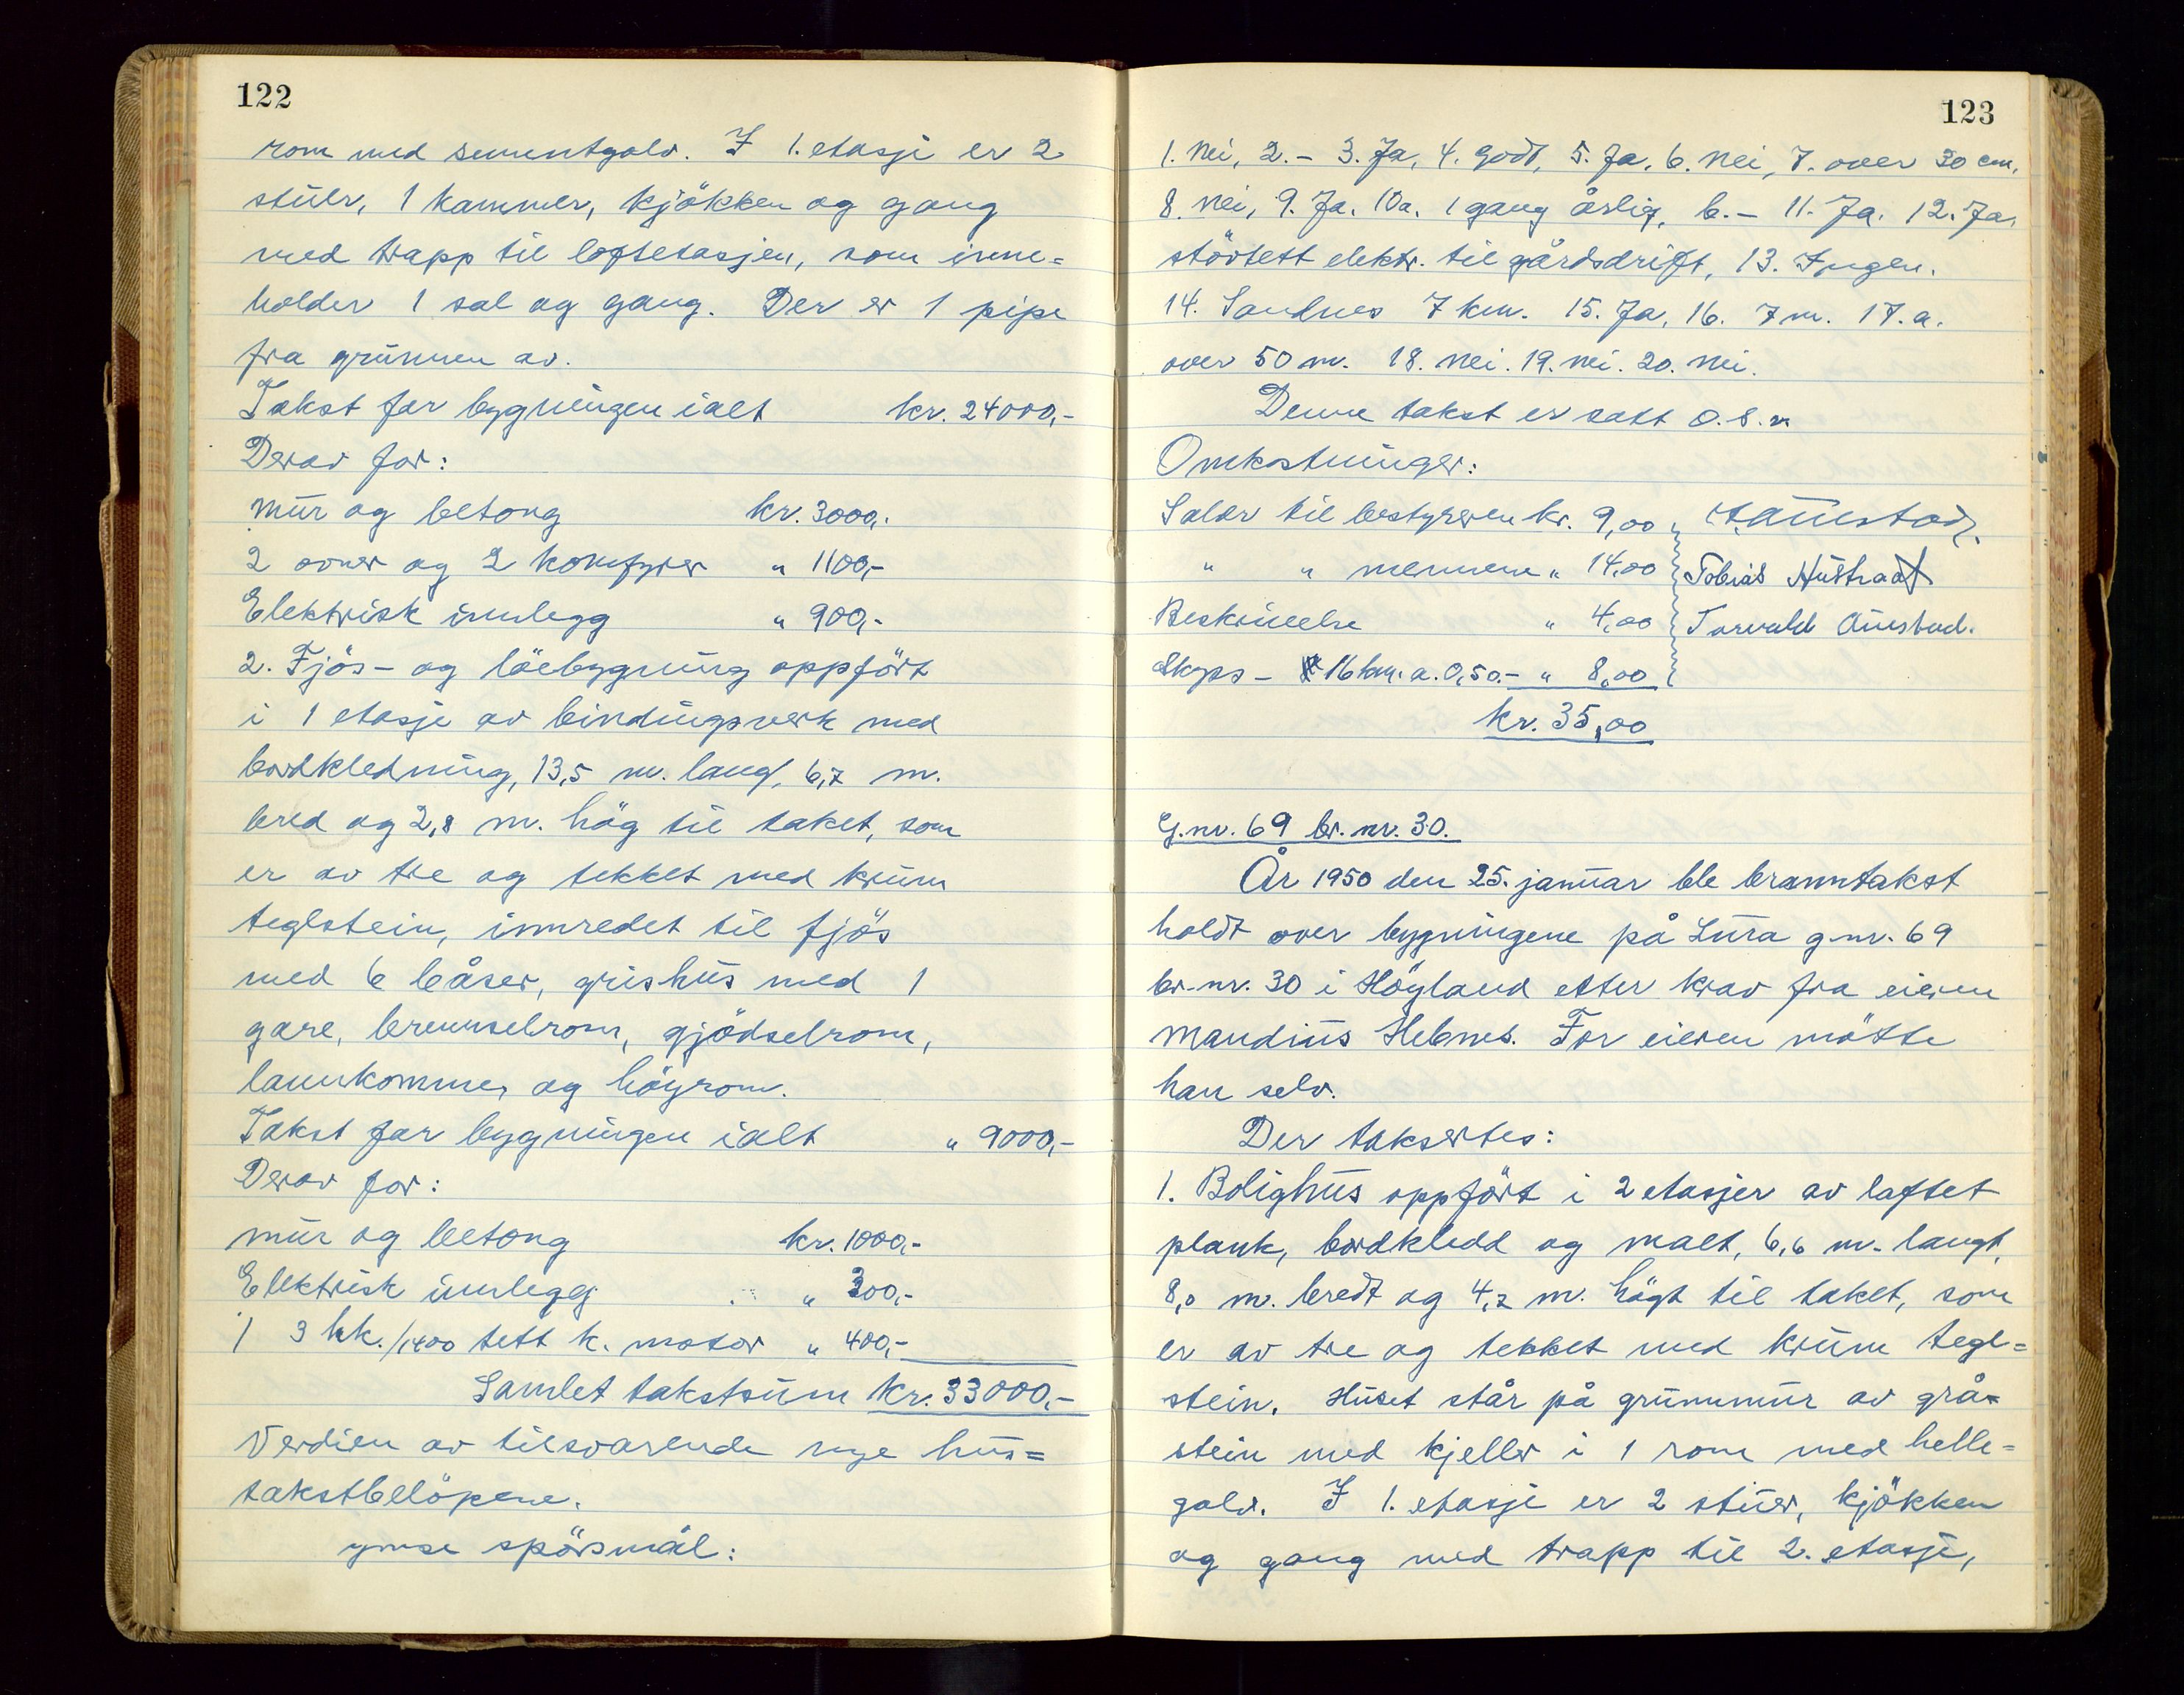 122
rom med sementgolv. I 1. etasje er 2
stuer, 1 kammer, kjökken og gang
med trapp til loftetasjen, som inne=
holder 1 sal og gang. Der er 1 pipe
fra grunnen av.
Takst for bygningen ialt kr. 24000,-
Derav for:
mur og betong kr. 3000,-
2 ovner og 2 komfyrer " 1100,-
Elektrisk innlegg " 900,-
2. Fjös- og löebygning oppfört
i 1 etasje av bindingsverk med
bordkledning, 13,5 m. lang, 6,7 m.
bred og 2,8 m. hög til taket, som
er av tre og tekket med krum
teglstein, innredet til fjös
med 6 båser, grishus med 1
gare, brenselrom, gjödselrom,
laun­komme, og höyrom.
Takst for bygningen ialt " 9000,-
Derav for:
mur og betong kr. 1000,-
Elektrisk innlegg " 300,-
1 3 hk./1400 tett k. motor " 400,-
Samlet takstsum kr. 33000,-
Verdien av tilsvarende nye hus=
takstbelöpene.
ymse spörsmål:
123
1. Nei, 2. - 3. Ja, 4. godt, 5. Ja, 6. Nei, 7. over 30 cm,
8. Nei, 9. Ja. 10a. 1 gang årlig, b. - 11. Ja. 12. Ja,
stövtett elektr. til gårdsdrift, 13. Ingen.
14. Sandnes 7 km. 15. Ja, 16. 7 m. 17. a.
over 50 m. 18. Nei. 19. Nei. 20. Nei.
Denne takst er satt O. S. v.
Omkostninger:
Salær til bestyreren kr. 9,00 Aaustad.
" " mennene " 14,00 Tobias Hustradt
Beskrivelse " 4,00 Torvald Austad.
Skyss - 16 km. a. 0,50.- " 8,00
kr. 35,00
G.nr. 69 br. nr. 30.
År 1950 den 25. januar ble branntakst
holdt over bygningene på Lura g.nr. 69
br. nr. 30 i Höyland etter krav fra eieren
Maudius Hebnes. For eieren mötte
han selv.
Der taksertes:
1. Bolighus oppfört i 2 etasjer av laftet
plank, bordkledd og malt, 6,6 m. langt,
8,0 m. bredt og 4,2 m. högt til taket, som
er av tre og tekket med krum tegl=
stein. Huset står på grunnmur av grå=
stein med kjeller i 1 rom med helle=
golv. I 1. etasje er 2 stuer, kjökken
og gang med trapp til 2. etasje,